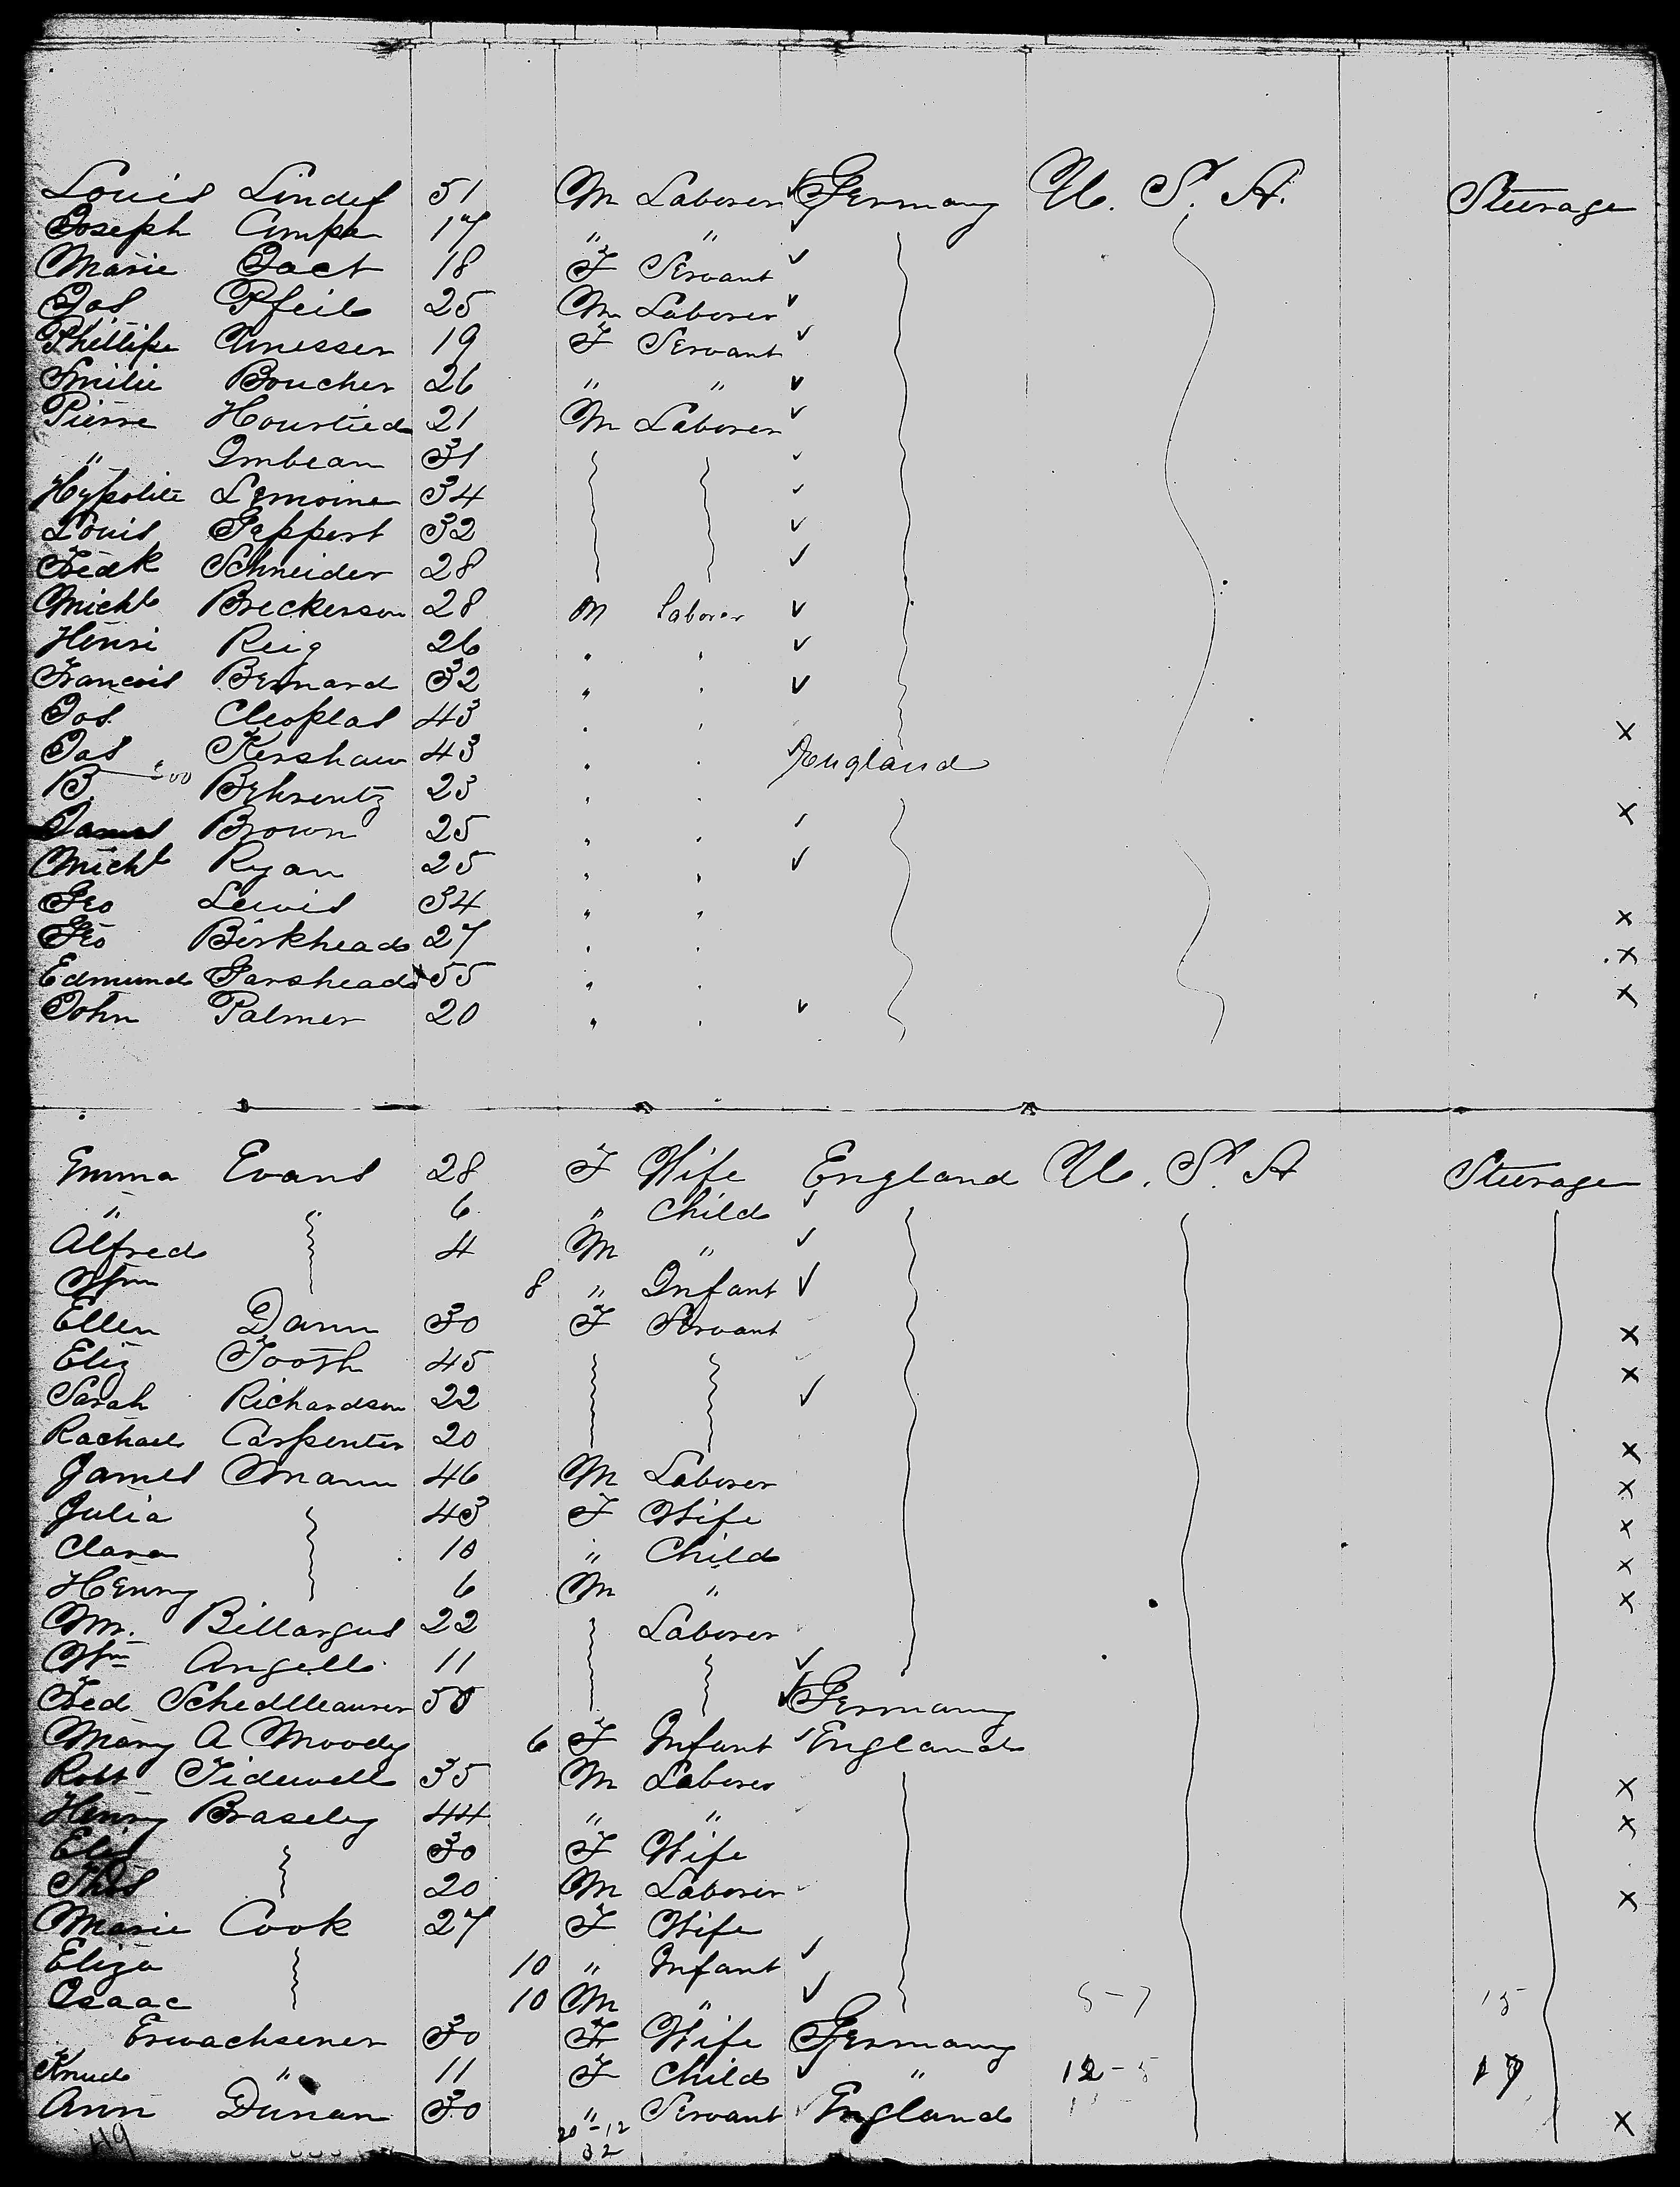 Louis Lindef 51 M Laborer Germany U. S. A. Steerage
Joseph Ampe 17 " "
Marie Jact 18 F Servant
Jos Pfeil 25 M Laborer
Phillipe Anesser 19 F Servant
Emilie Boucher 26 " "
Pierre Houstied 21 M Laborer
" Imbeau 31
Hypolite Lemoine 34
Louis Geppert 32
Fredk Schneider 28
Michl Breckerson 28 M Laborer
Henri Reig 26
Francois Bernard 32
Jos Cleoplas 43
Jas Kershaw 43 England
B. Behrentz 23
James Brown 25
Michl Ryan 25
Geo Lewis 34
Geo Birkhead 27
Edmund Garshead 55
John Palmer 20
Emma Evans 28 F Wife England U. S. A Steerage
" " 6 " Child
Alfred 4 M "
Wm 8 " Infant
Ellen Dann 30 F Servant
Eliz Tooth 45
Sarah Richardson 22
Rachael Carpenter 20
James Mann 46 M Laborer
Julia 43 F Wife
Clara 10 " Child
Henry 6 M "
Wm. Billargus 22 Laborer
Wm Angell 11
Fred 50 Germany
Mary A Moody 6 F Infant England
Robt Tidewell 35 M Laborer
Henry Braseley 44 " "
Eliz 30 F Wife
Thos 20 M Laborer
Marie Cook 27 F Wife
Eliza 10 " Infant
Isaac 10 M "
Erwachsener 30 F Wife Germany
Knud " 11 F Child "
Ann Dunan 30 " Servant England